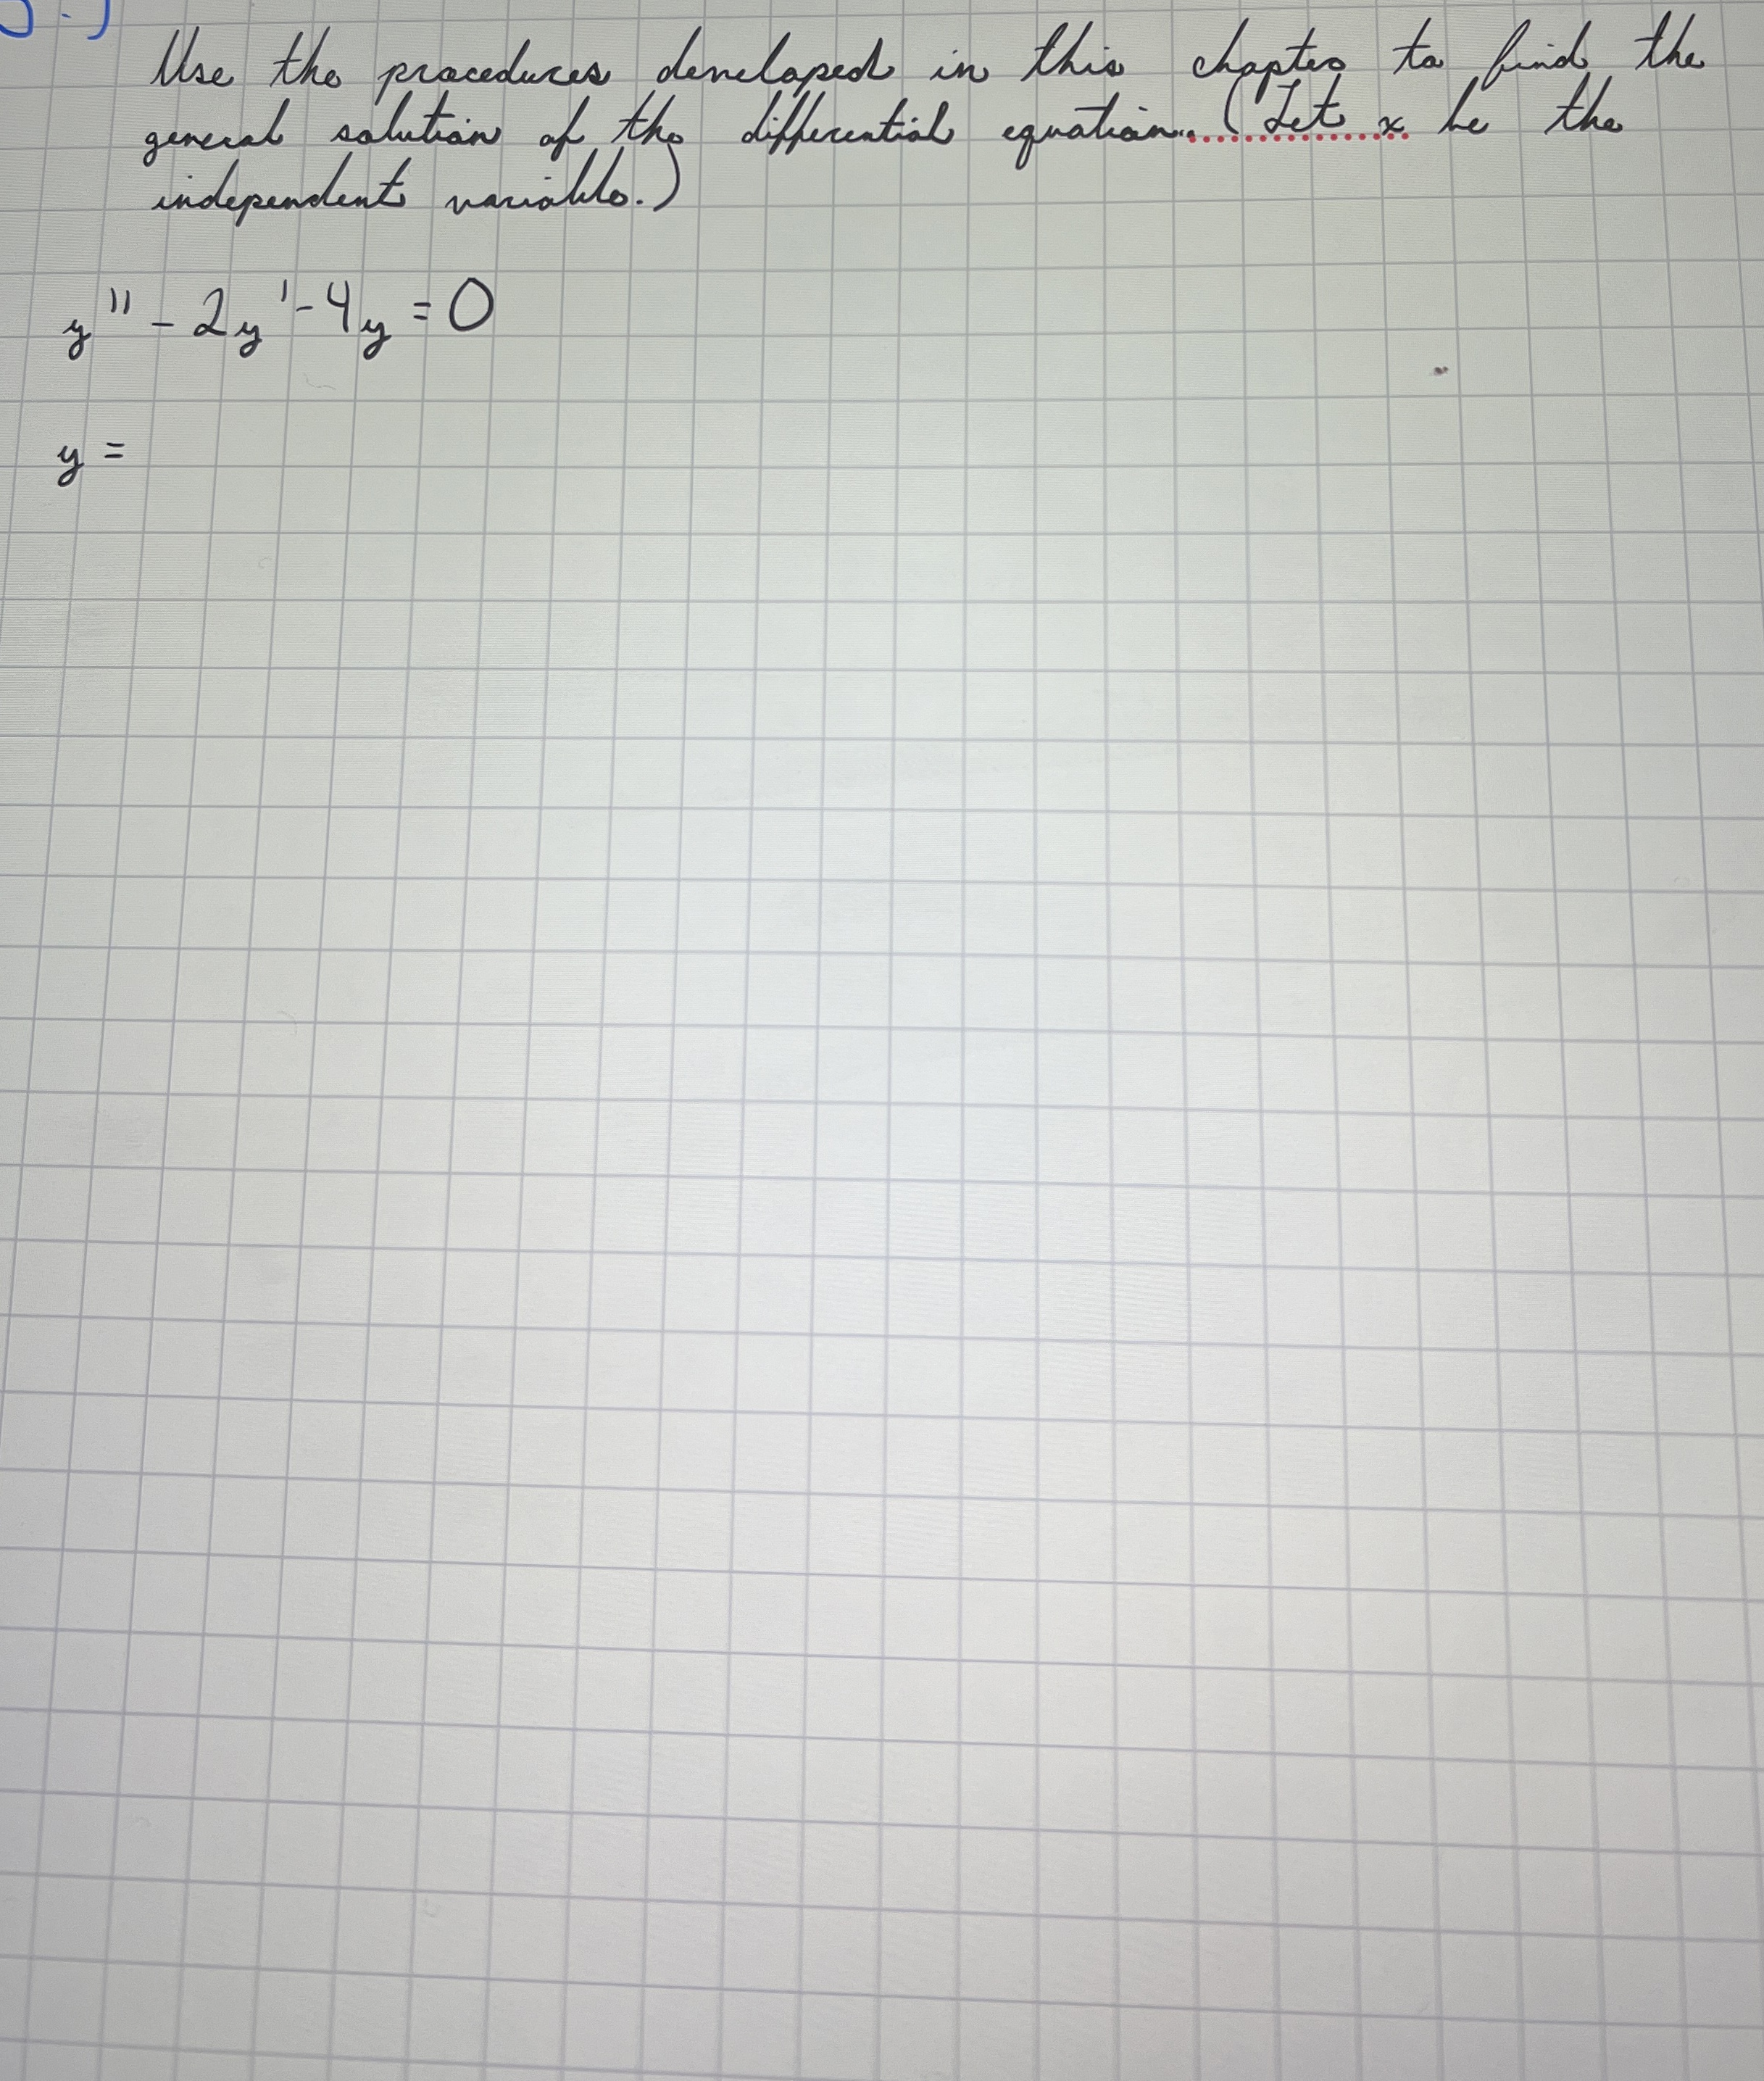 Use the procedures developed in this chapter to find the
general solution of the differential equation. (Let x be the
independent variable.)
y'' - 2y' - 4y = 0
y =